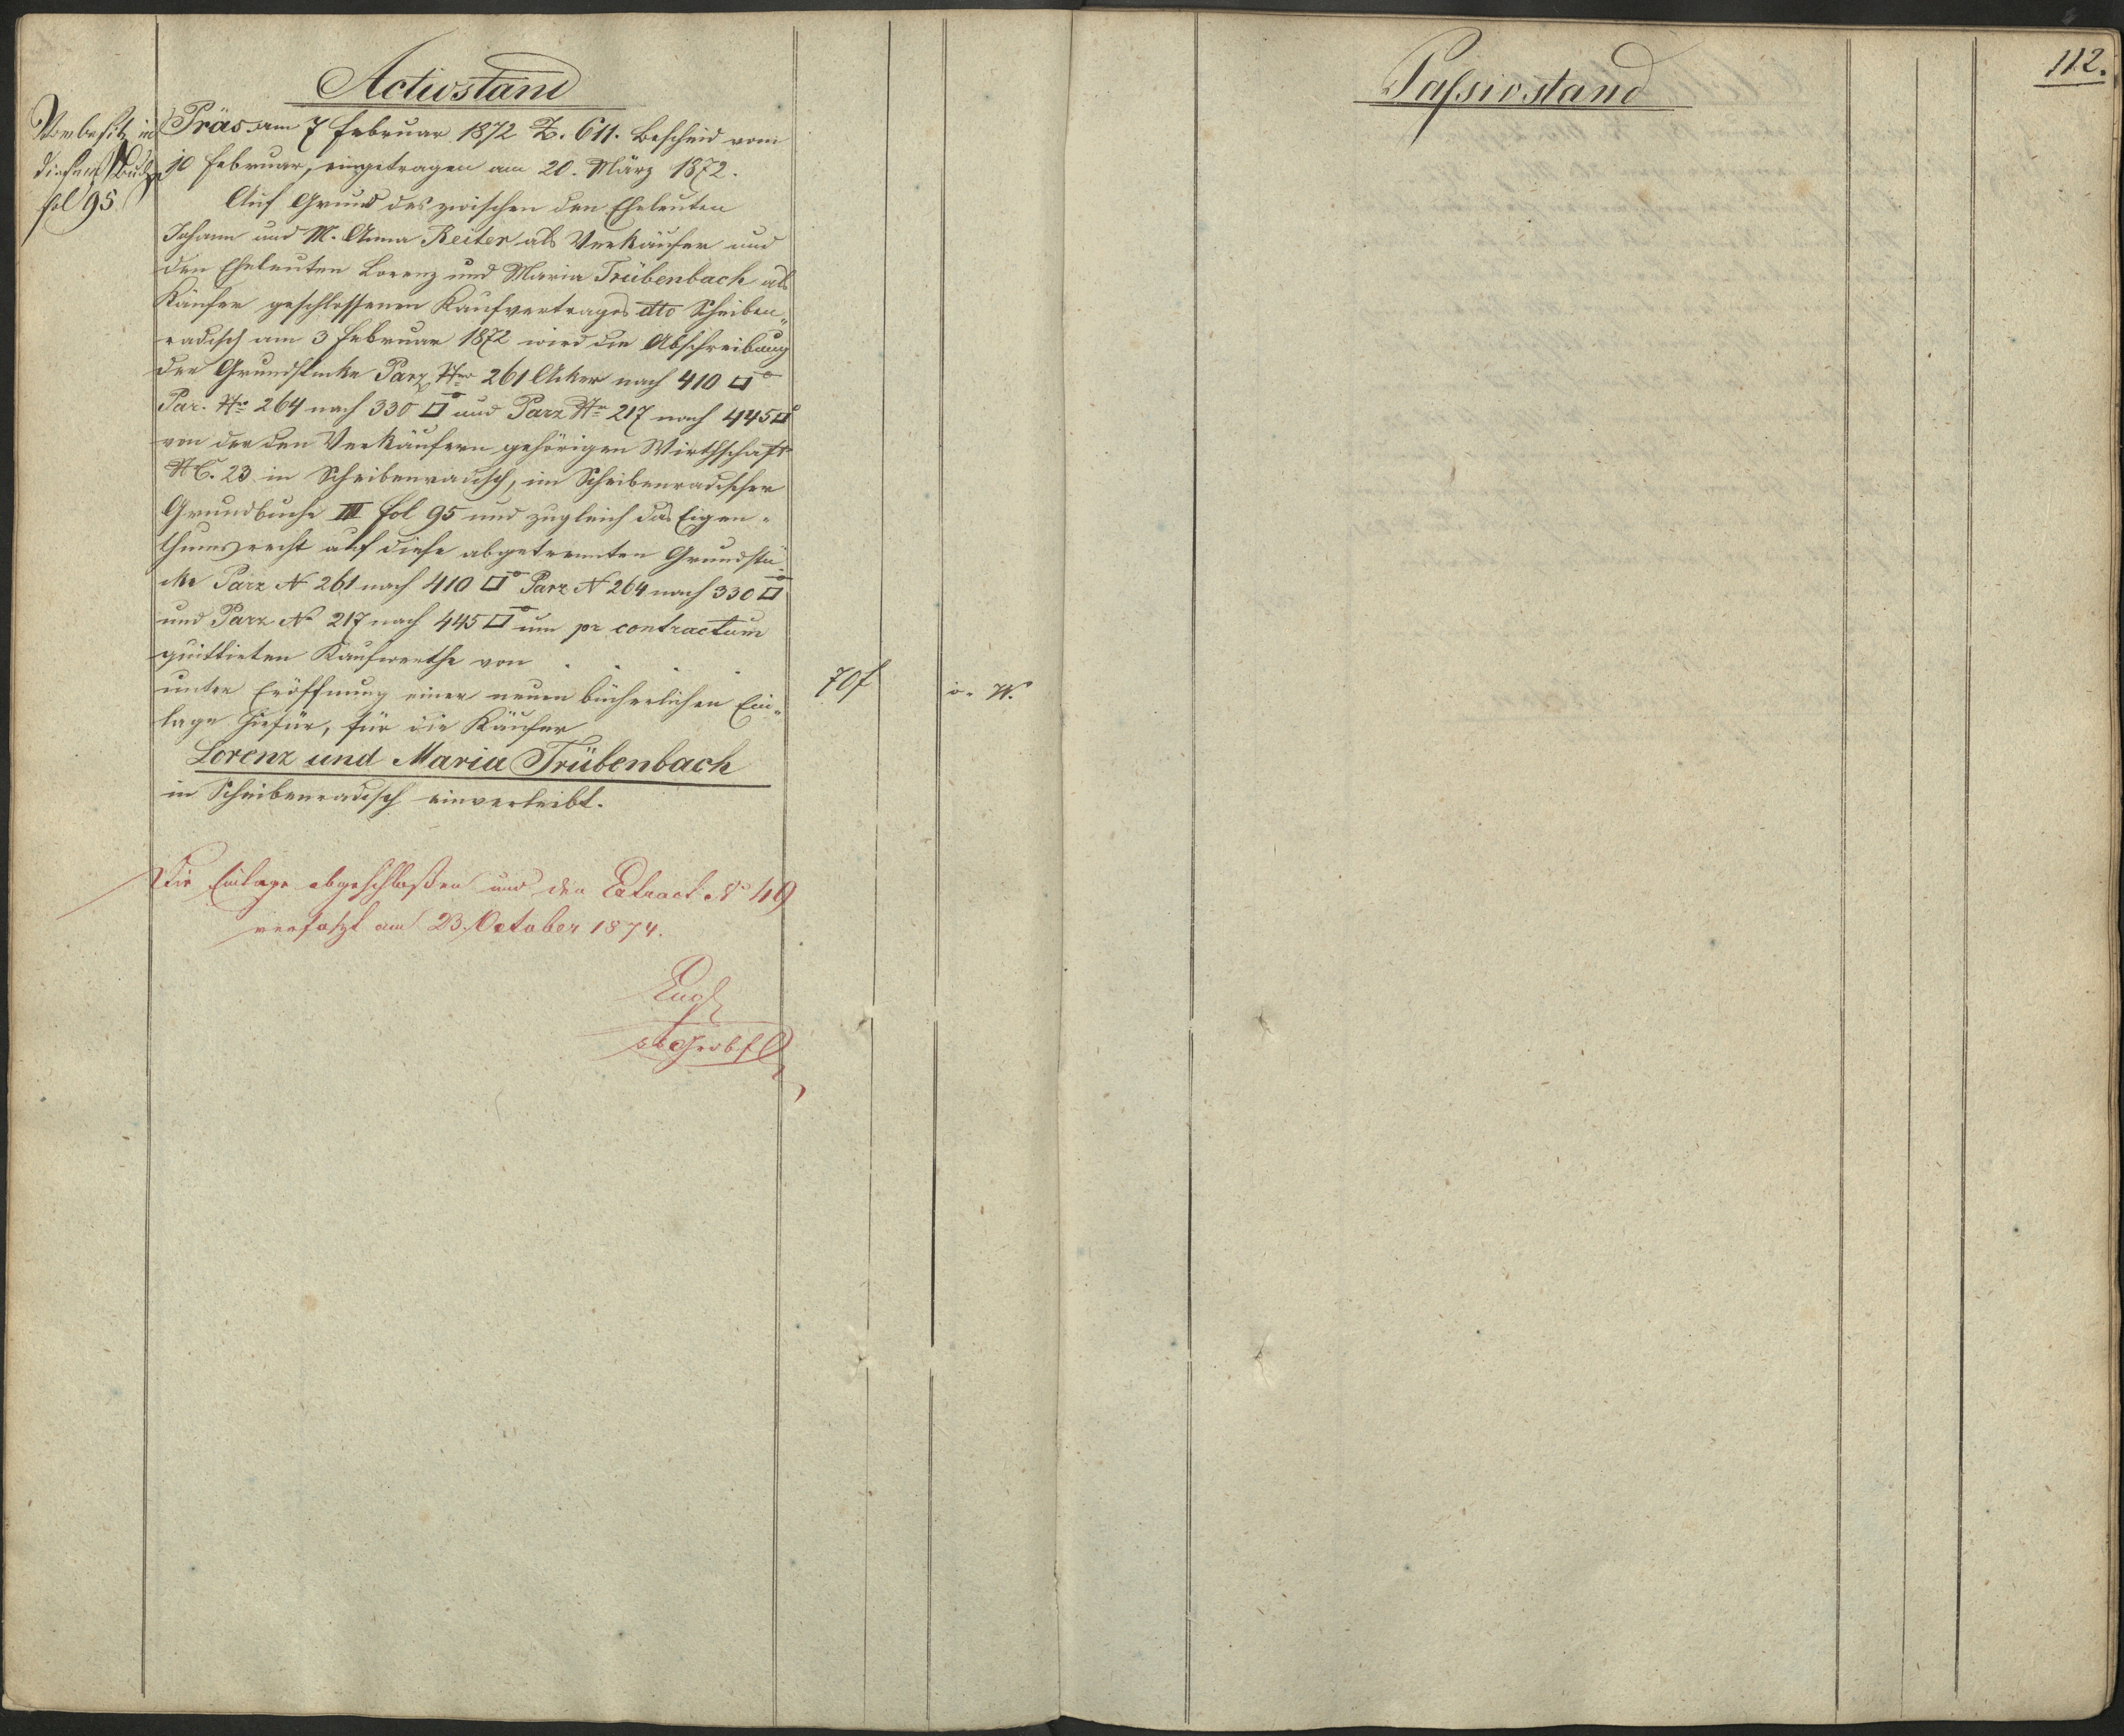 Activstand
Vorbesitz in
diesem Buche
fol 95
Präs. am 7 Februar 1872 Z. 611. Bescheid vom
10 Februar, eingetragen am 20. März 1872.
Auf Grund des zwischen den Eheleuten
Johann und M. Anna Reiter als Verkäufer und
den Eheleuten Lorenz und Maria Trübenbach als
Käufer geschlossenen Kaufvertrages dto Scheiben„
radisch am 3 Februar 1872 wird die Abschreibung
der Grundstücke Parz. Nro 261 Acker nach 410 □°
Par. Nro 264 nach 330 □° und Parz Nr 217 nach 445 □°
von der den Verkäufern gehörigen Wirthschaft
NC. 23 in Scheibenradisch, im Scheibenradischer
Grundbuche III fol 95 und zugleich das Eigen-
thumsrecht auf diese abgetrennten Grundstü-
cke Parz N 261 nach 410 □° Parz N 264 nach 330 □°
und Parz No 217 nach 445 □° um pr contractum
quittirten Kaufwerthe von . . . .
70 f ö. W.
unter Eröffnung einer neuen bücherlichen Ein„
lage hiefür, für die Käufer
Lorenz und Maria Trübenbach
in Scheibenradisch einverleibt.
Die Einlage abgeschloßen und den Extract No 49
verfaßt am 23. October 1874.
Passivstand
112.